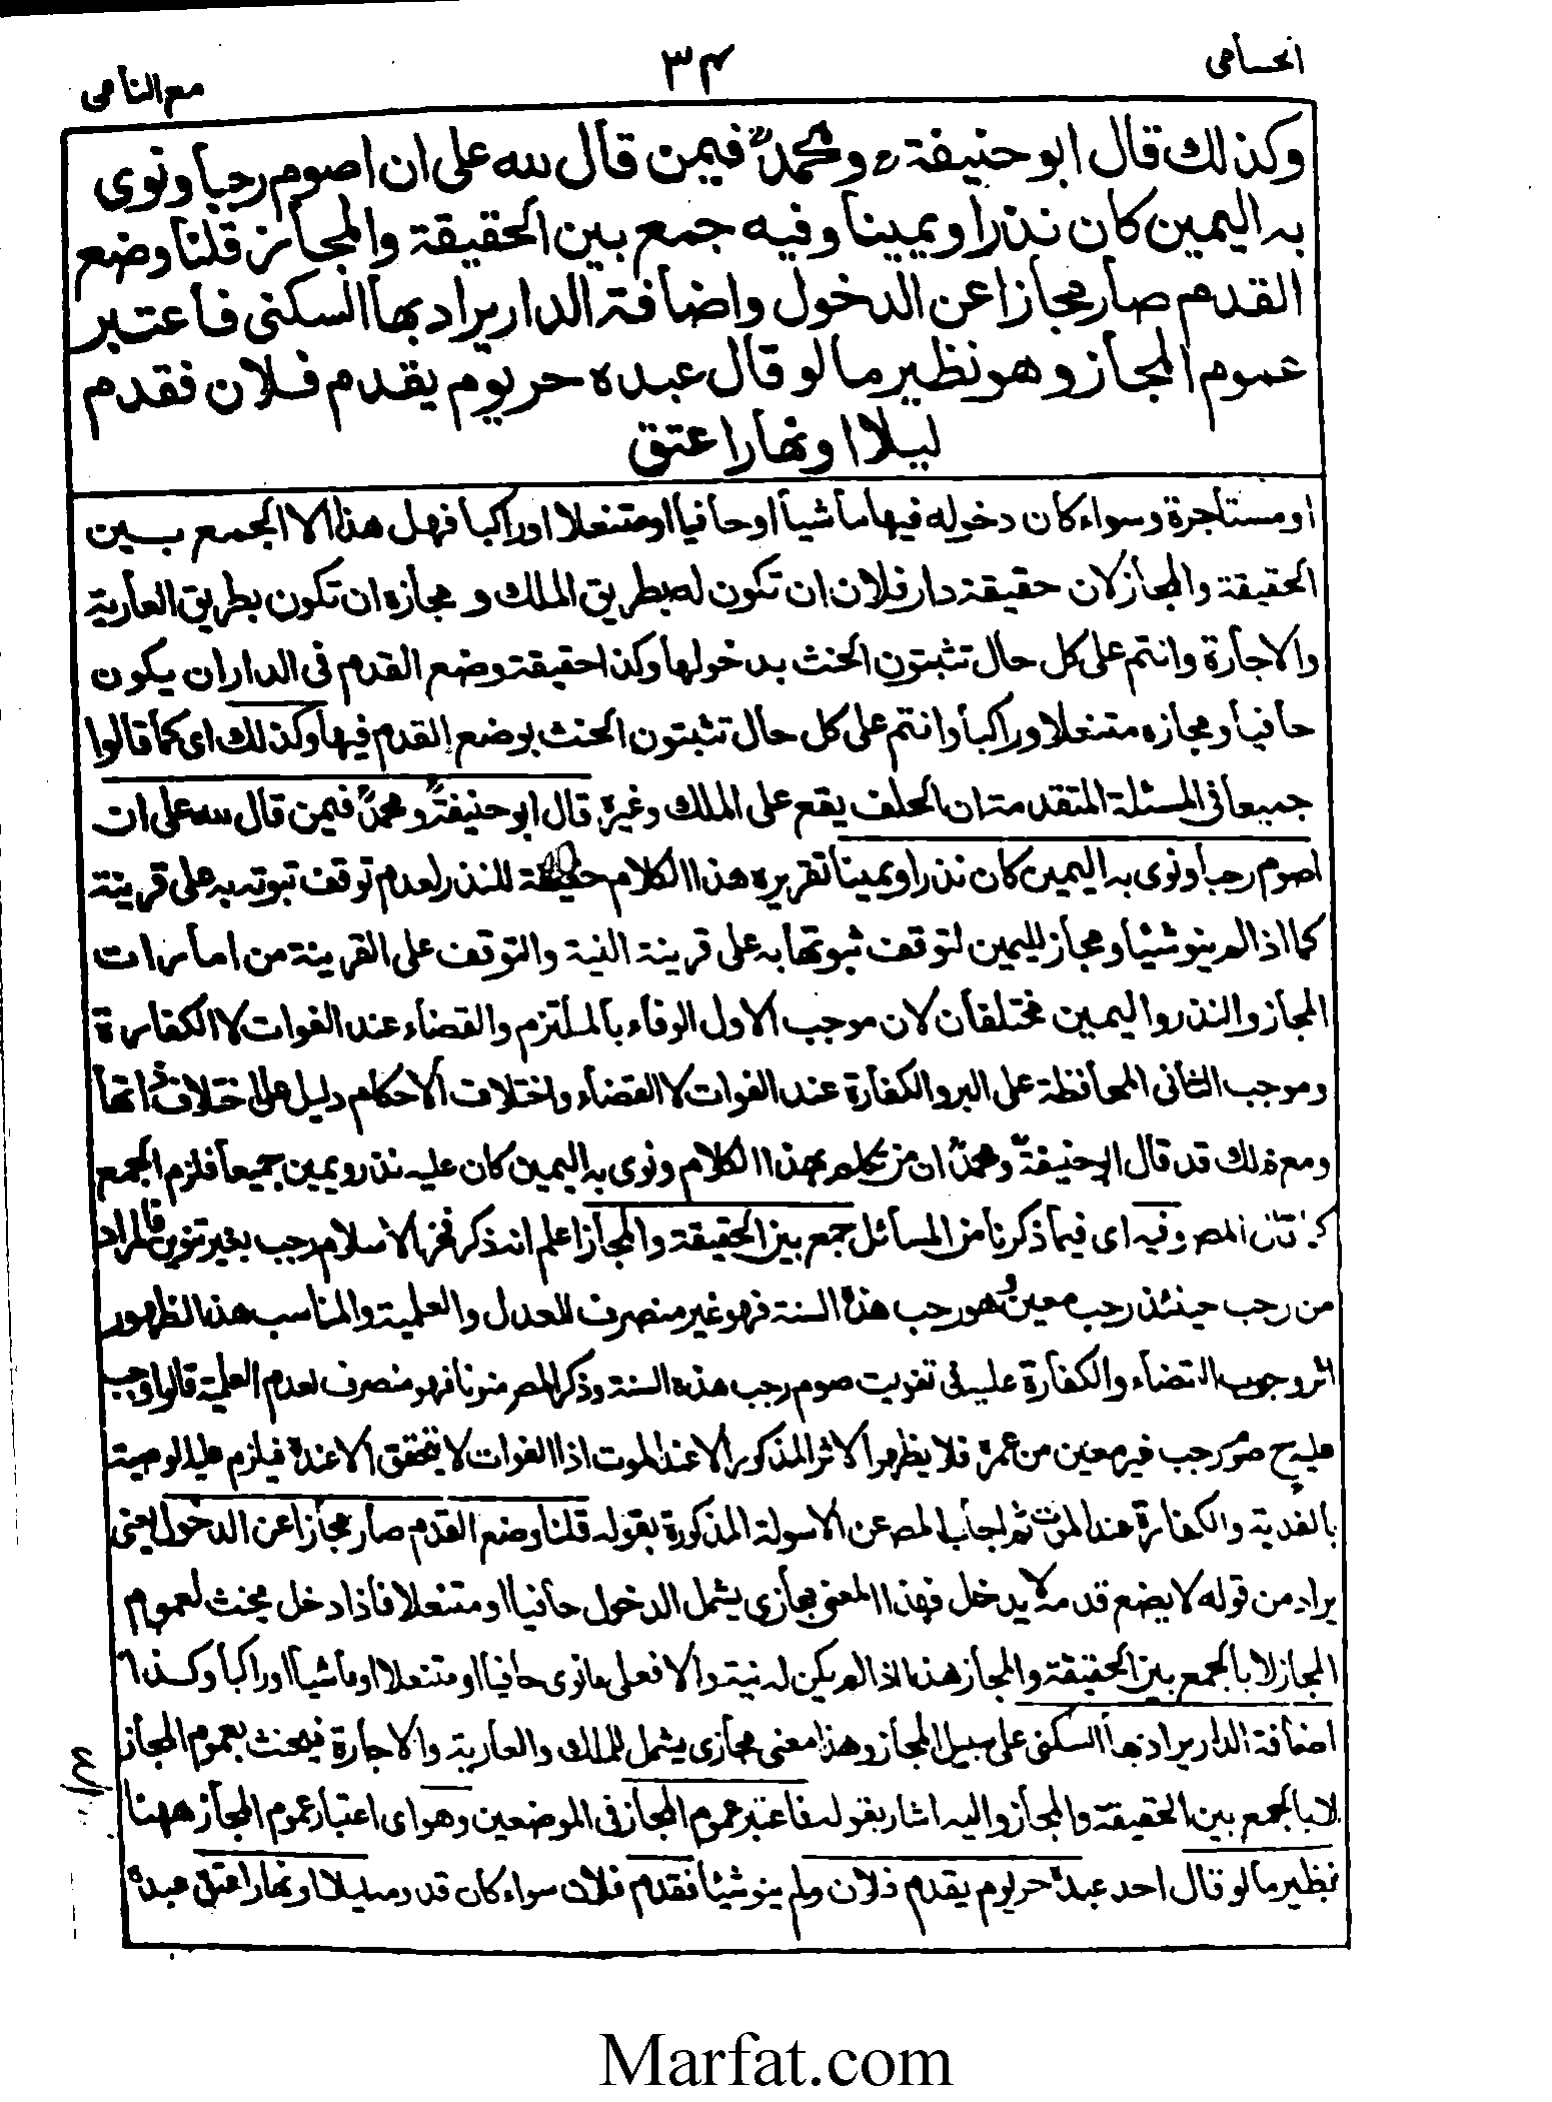 الحسامی
۳۴
مع النامی
وكذلك قال ابو حنيفة رح ومحمدؒ فيمن قال لله على ان اصوم رجبا ونوى
به اليمين كان نذرا ويمينا وفيه جمع بين الحقيقة والمجاز قلنا وضع
القدم صار مجازا عن الدخول واضافة الدار يراد بها السكنى فاعتبر
عموم المجاز وهو نظير ما لو قال عبده حر يوم يقدم فلان فقدم
ليلا او نهارا عتق
او مستأجرة وسواء كان دخوله فيها ماشيا او حافيا او متنعلا او راكبا فهل هذا الا الجمع بين
الحقيقة والمجاز لان حقيقة دار فلان ان تكون له بطريق الملك و مجازه ان تكون بطريق العارية
والاجارة وانتم على كل حال تثبتون الحنث بدخولها وكذا حقيقة وضع القدم فى الدار ان يكون
حافيا ومجازه متنعلا وراكبا وانتم على كل حال تثبتون الحنث بوضع القدم فيها وكذلك اى كما قالوا
جميعا فى المسئلة المتقدمة ان الحلف يقع على الملك وغيره قال ابو حنيفةؒ ومحمدؒ فيمن قال لله على ان
اصوم رجبا ونوى به اليمين كان نذرا ويمينا تقريره هذا الكلام حقيقة للنذر لعدم توقف ثبوته به على قرينة
كما اذا لم ينو شيئا ومجاز لليمين لتوقف ثبوتها به على قرينة النية والتوقف على القرينة من امارات
المجاز والنذر واليمين مختلفان لان موجب الاول الوفاء بالملتزم والقضاء عند الفوات لا الكفارة
وموجب الثانى المحافظة على البر والكفارة عند الفوات لا القضاء واختلاف الاحكام دليل على اختلاف ذاتها
ومع ذلك قد قال ابو حنيفةؒ ومحمدؒ ان من تكلم بهذا الكلام ونوى به اليمين كان عليه نذر ويمين جميعا فلزم الجمع
كما قال المص وفيه اى فيما ذكرنا من المسائل جمع بين الحقيقة والمجاز اعلم انه ذكر فخر الاسلام رجب بغير تنوين فالمراد
من رجب حينئذ رجب معين وهو رجب هذه السنة فهو غير منصرف للعدل والعلمية والمناسب هذا لظهور
اثر وجوب القضاء والكفارة عليه فى تفويت صوم رجب هذه السنة وذكر المص منونا فهو منصرف لعدم العلمية قالوا وجب
عليه ح صوم رجب غير معين من عمره فلا يظهر الاثر المذكور الا عند الموت اذا الفوات لا يتحقق الا عنده فيلزم عليه الوصية
بالفدية والكفارة عند الموت ثم اجاب المص عن الاسولة المذكورة بقوله قلنا وضع القدم صار مجازا عن الدخول يعنى
يراد من قوله لا يضع قدمه لا يدخل فهذا المعنى مجازى يشمل الدخول حافيا او متنعلا فاذا دخل يحنث لعموم
المجاز لا بالجمع بين الحقيقة والمجاز هذا اذا لم يكن له نية والا فعلى ما نوى حافيا او متنعلا او ماشيا او راكبا وكذا
اضافة الدار يراد بها السكنى على سبيل المجاز وهذا معنى مجازى يشمل للملك والعارية والاجارة فيحنث بعموم المجاز
لا بالجمع بين الحقيقة والمجاز واليه اشار بقوله فاعتبر عموم المجاز فى الموضعين وهو اى اعتبار عموم المجاز ههنا
نظير ما لو قال احد عبده حر يوم يقدم فلان ولم ينو شيئا فقدم فلان سواء كان قدومه ليلا او نهارا عتق عبده
ع
Marfat.com